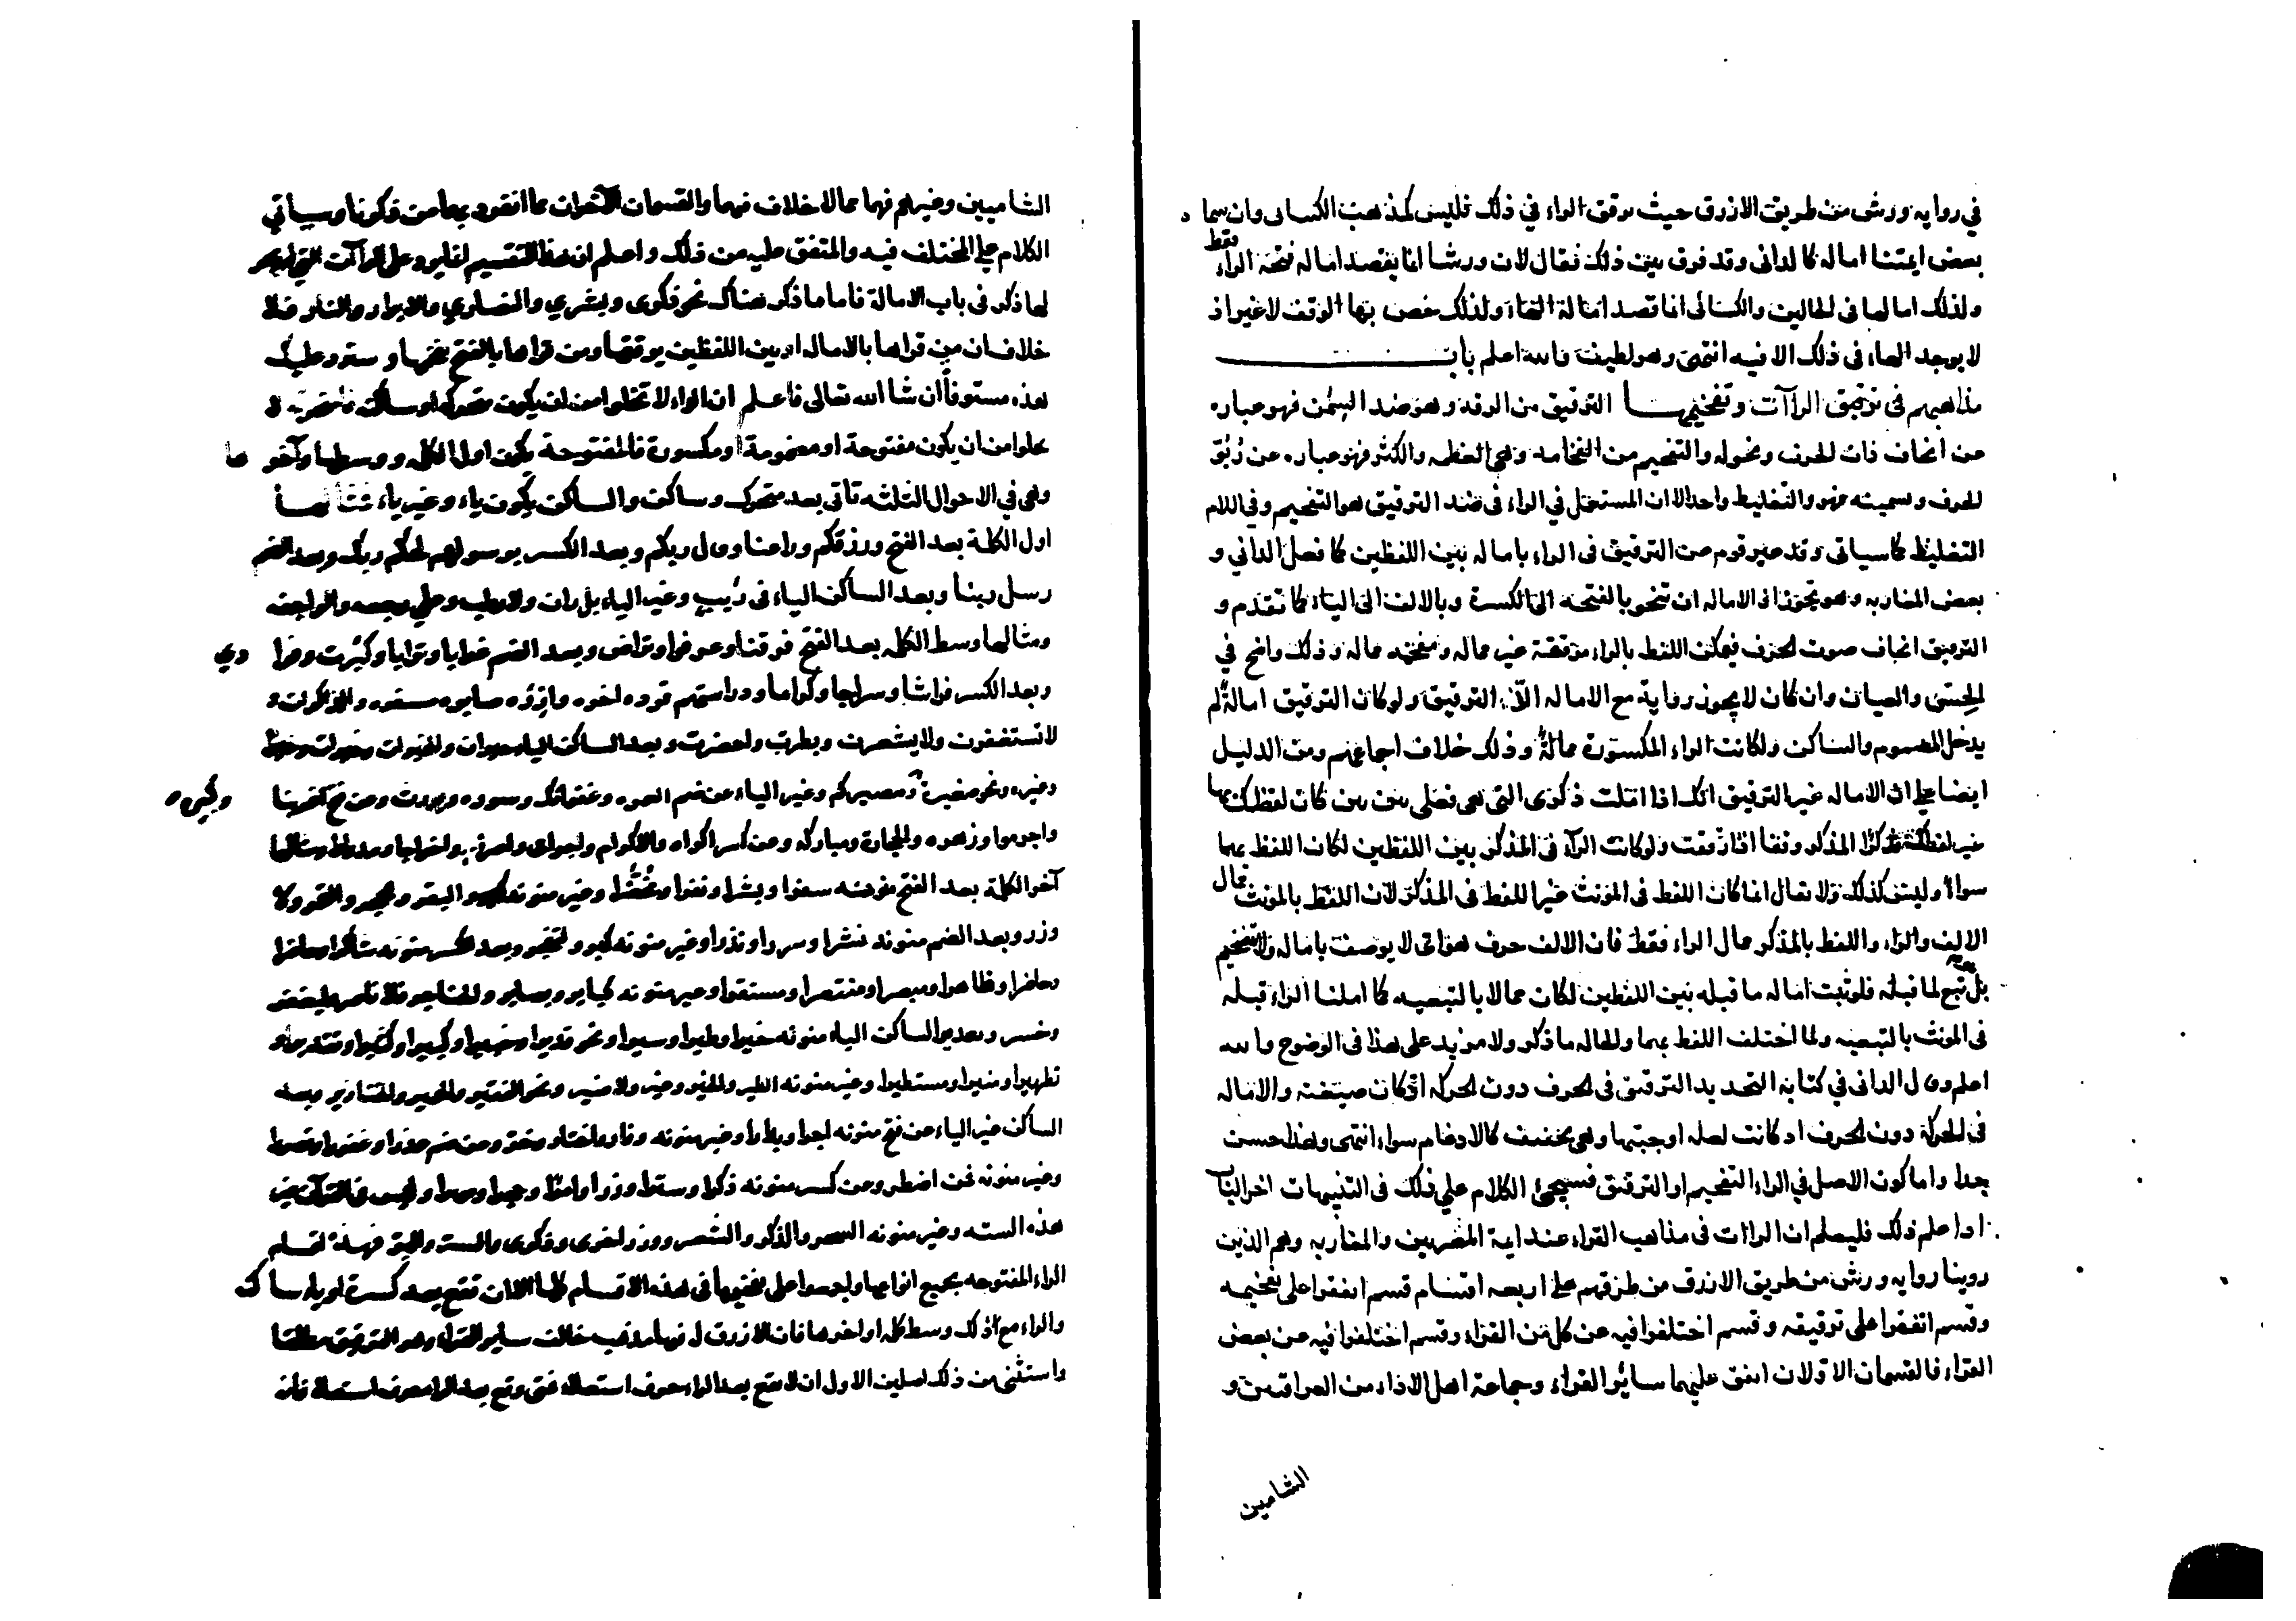 في رواية ورش من طريق الازرق حيث يرقق الراء في ذلك فليس كمذهب الكسائي وان سماه
بعض ايمتنا اماله كالداني وقد فرق بين ذلك فقال لان ورشا انما يقصد اماله فتحة الراء فقط
ولذلك امالها في الحالين والكسائي انما قصد امالة الهاء ولذلك خص بها الوقف لا غير اذ
لا يوجد الهاء في ذلك الا فيه انتهى وهو لطيف فالله اعلم باب
مذاهبهم في ترقيق الراآت وتفخيمها الترقيق من الرقه وهو ضد السمن فهو عباره
عن انحاف ذات الحرف ونحوله والتفخيم من الفخامه وهي العظمه والكثر فهو عباره عن ربو
الحرف وتسمينه فهو والتغليظ واحد الا ان المستعمل في الراء في ضد الترقيق هو التفخيم وفي اللام
التغليظ كما سياتي وقد عبر قوم عن الترقيق في الراء باماله بين اللفظين كما فعل الداني و
بعض المغاربه وهو تجوز اذ الاماله ان تنحو بالفتحه الى الكسرة وبالالف الى الياء كما تقدم و
الترقيق انحاف صوت الحرف فيمكن اللفظ بالراء مرققة غير مماله ومفخمه مماله وذلك واضح في
الحس والعيان وان كان لا يجوز رواية مع الاماله الا الترقيق ولو كان الترقيق امالة لم
يدخل المضموم والساكن ولكانت الراء المكسورة ممالة وذلك خلاف اجماعهم ومن الدليل
ايضا على ان الاماله غير الترقيق انك اذا املت ذكرى التي هي فعلى بين بين كان لفظك بها
غير لفظك بذكرا المذكر وقفا اذا رققت ولو كانت الراء في المذكر بين اللفظين لكان اللفظ بهما
سواء وليس كذلك ولا يقال انما كان اللفظ في المونث غير اللفظ في المذكر لان اللفظ بالمونث ممال
الالف والراء واللفظ بالمذكر ممال الراء فقط فان الالف حرف هوائي لا يوصف باماله ولا تفخيم
بل تبع لما قبله فلو ثبت اماله ما قبله بين اللفظين لكان ممالا بالتبعيه كما املنا الراء قبله
في المونث بالتبعيه ولما اختلف اللفظ بهما والحاله ما ذكر ولا مزيد على هذا في الوضوح والله
اعلم وقال الداني في كتابه التجديد الترقيق في الحرف دون الحركه اذ كان صيغته والاماله
في الحركة دون الحرف اذ كانت لعله اوجبتها وهي تخفيف كالادغام سواء انتهى وهذا حسن
جدا واما كون الاصل في الراء التفخيم او الترقيق فسيجئ الكلام على ذلك في التنبيهات اخر الباب
اذا علم ذلك فليعلم ان الراات في مذاهب القراء عند ايمة المصريين والمغاربه وهم الذين
روينا روايه ورش من طريق الازرق من طرقهم على اربعه اقسام قسم اتفقوا على تفخيمه
وقسم اتفقوا على ترقيقه وقسم اختلفوا فيه عن كل من القراء وقسم اختلفوا فيه عن بعض
القراء فالقسمان الاولان اتفق عليهما سائر القراء وجماعة اهل الاداء من العراقيين و
الشامين
الشاميين وغيرهم فهما مما لا خلاف فيهما والقسمان الآخران مما انفرد بهما من ذكرنا وسياتي
الكلام على المختلف فيه والمتفق عليه من ذلك واعلم ان هذا التقسيم انما يرد على الراآت التي لم يجر
لها ذكر في باب الامالة فاما ما ذكر هناك نحو ذكرى وبشرى والنصارى والابرار والنار فلا
خلاف ان من قراها بالاماله او بين اللفظين يرققها ومن قراها بالفتح يفخمها وسترد عليك
هذه مستوفاة ان شا الله تعالى فاعلم ان الراء لا تخلوا من ان يكون متحركه او ساكنه فالمتحركه لا
تخلوا من ان يكون مفتوحة او مضمومة او مكسورة فالمفتوحة تكون اول الكلمه ووسطها وآخرها
وهي في الاحوال الثلثه تاتي بعد متحرك وساكن والساكن يكون ياء وغير ياء فمثالها
اول الكلمة بعد الفتح ورزقكم وراعنا وقال ربكم وبعد الكسر برسولهم لحكم ربك وبعد الضم
رسل ربنا وبعد الساكن الياء في ريب وغير الياء بل ران ولا رطب وعلى رجعه والراجفه
ومثالها وسط الكلمه بعد الفتح فرقنا وعرفوا وتراض وبعد الضم غرابا وترابا وكبرت وفرادى
وبعد الكسر فراشا وسراجا وكراما ودراستهم قردة اخره وازره صابره مسفره والذاكرات و
لا تستغفرون ولا يشعرن وبطرت واحضرت وبعد الساكن الياء حيران والخيرات
وغيره ونحو مغيرة ومصيركم وغير الياء عن ضم العمره وغفرانك وسوره وعن فتح
واجرموا وزهره والحجارة ومباركه وعن كسر اكراه والاكرام واجرامي واخراجا ومدرارا ومثالها
آخر الكلمة بعد الفتح منونه سفرا وبشرا ونفرا ومحضرا وغير منونه البقر والحجر والقمر ولا
وزر وبعد الضم منونه نشرا وسررا ونذرا وغير منونه كبر وبعد الكسر منونه شاكرا
وحاضرا وظاهرا ومبصرا ومنتصرا ومستقرا وغير منونه كباير وبصاير والحناجر فلا ناصر ليغفر
وخسر وبعد الساكن الياء منونه خيرا وطيرا وسيرا ونحو قديرا وخبيرا وكبيرا وكثيرا وتقديرا و
تطهيرا ومنيرا ومستطيرا وغير منونه الطير والخير وغير ولا ضير ونحو الفقير والحمير والخنازير وبعد
الساكن غير الياء عن فتح منونه اجرا وبدارا وغير منونه وعن ضم عذرا وغفورا
وغير منونه فمن اضطر وعن كسر منونه ذكرا وسترا ووزرا وامرا وحجرا وصهرا وليس في القرآن غير
هذه السته وغير منونه السحر والذكر والشعر ووزر اخرى وذكرى والبر فهذه اقسام
الراء المفتوحه بجميع انواعها واجمعوا على تفخيمها في هذه الاقسام كلها الا ان تقع بعد كسرة او ياء ساكنه
والراء مع ذلك وسط كلمه او اخرها فان الازرق له فيها مذهب خالف ساير القراء وهو الترقيق مطلقا
واستثنى من ذلك اصلين الاول ان لا يقع بعد الراء حرف استعلاء فمتى وقع بعد الراء حرف استعلاء فانه